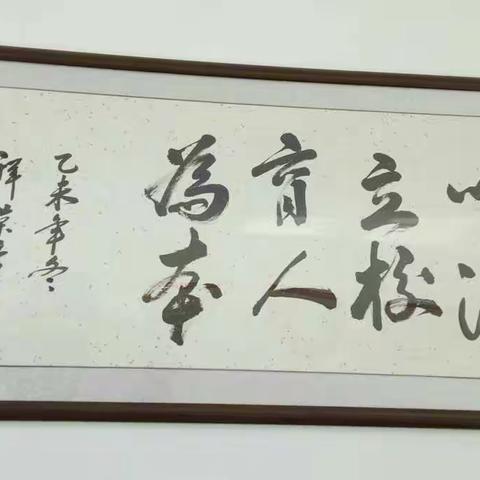 立校
育人
為本
乙未年冬